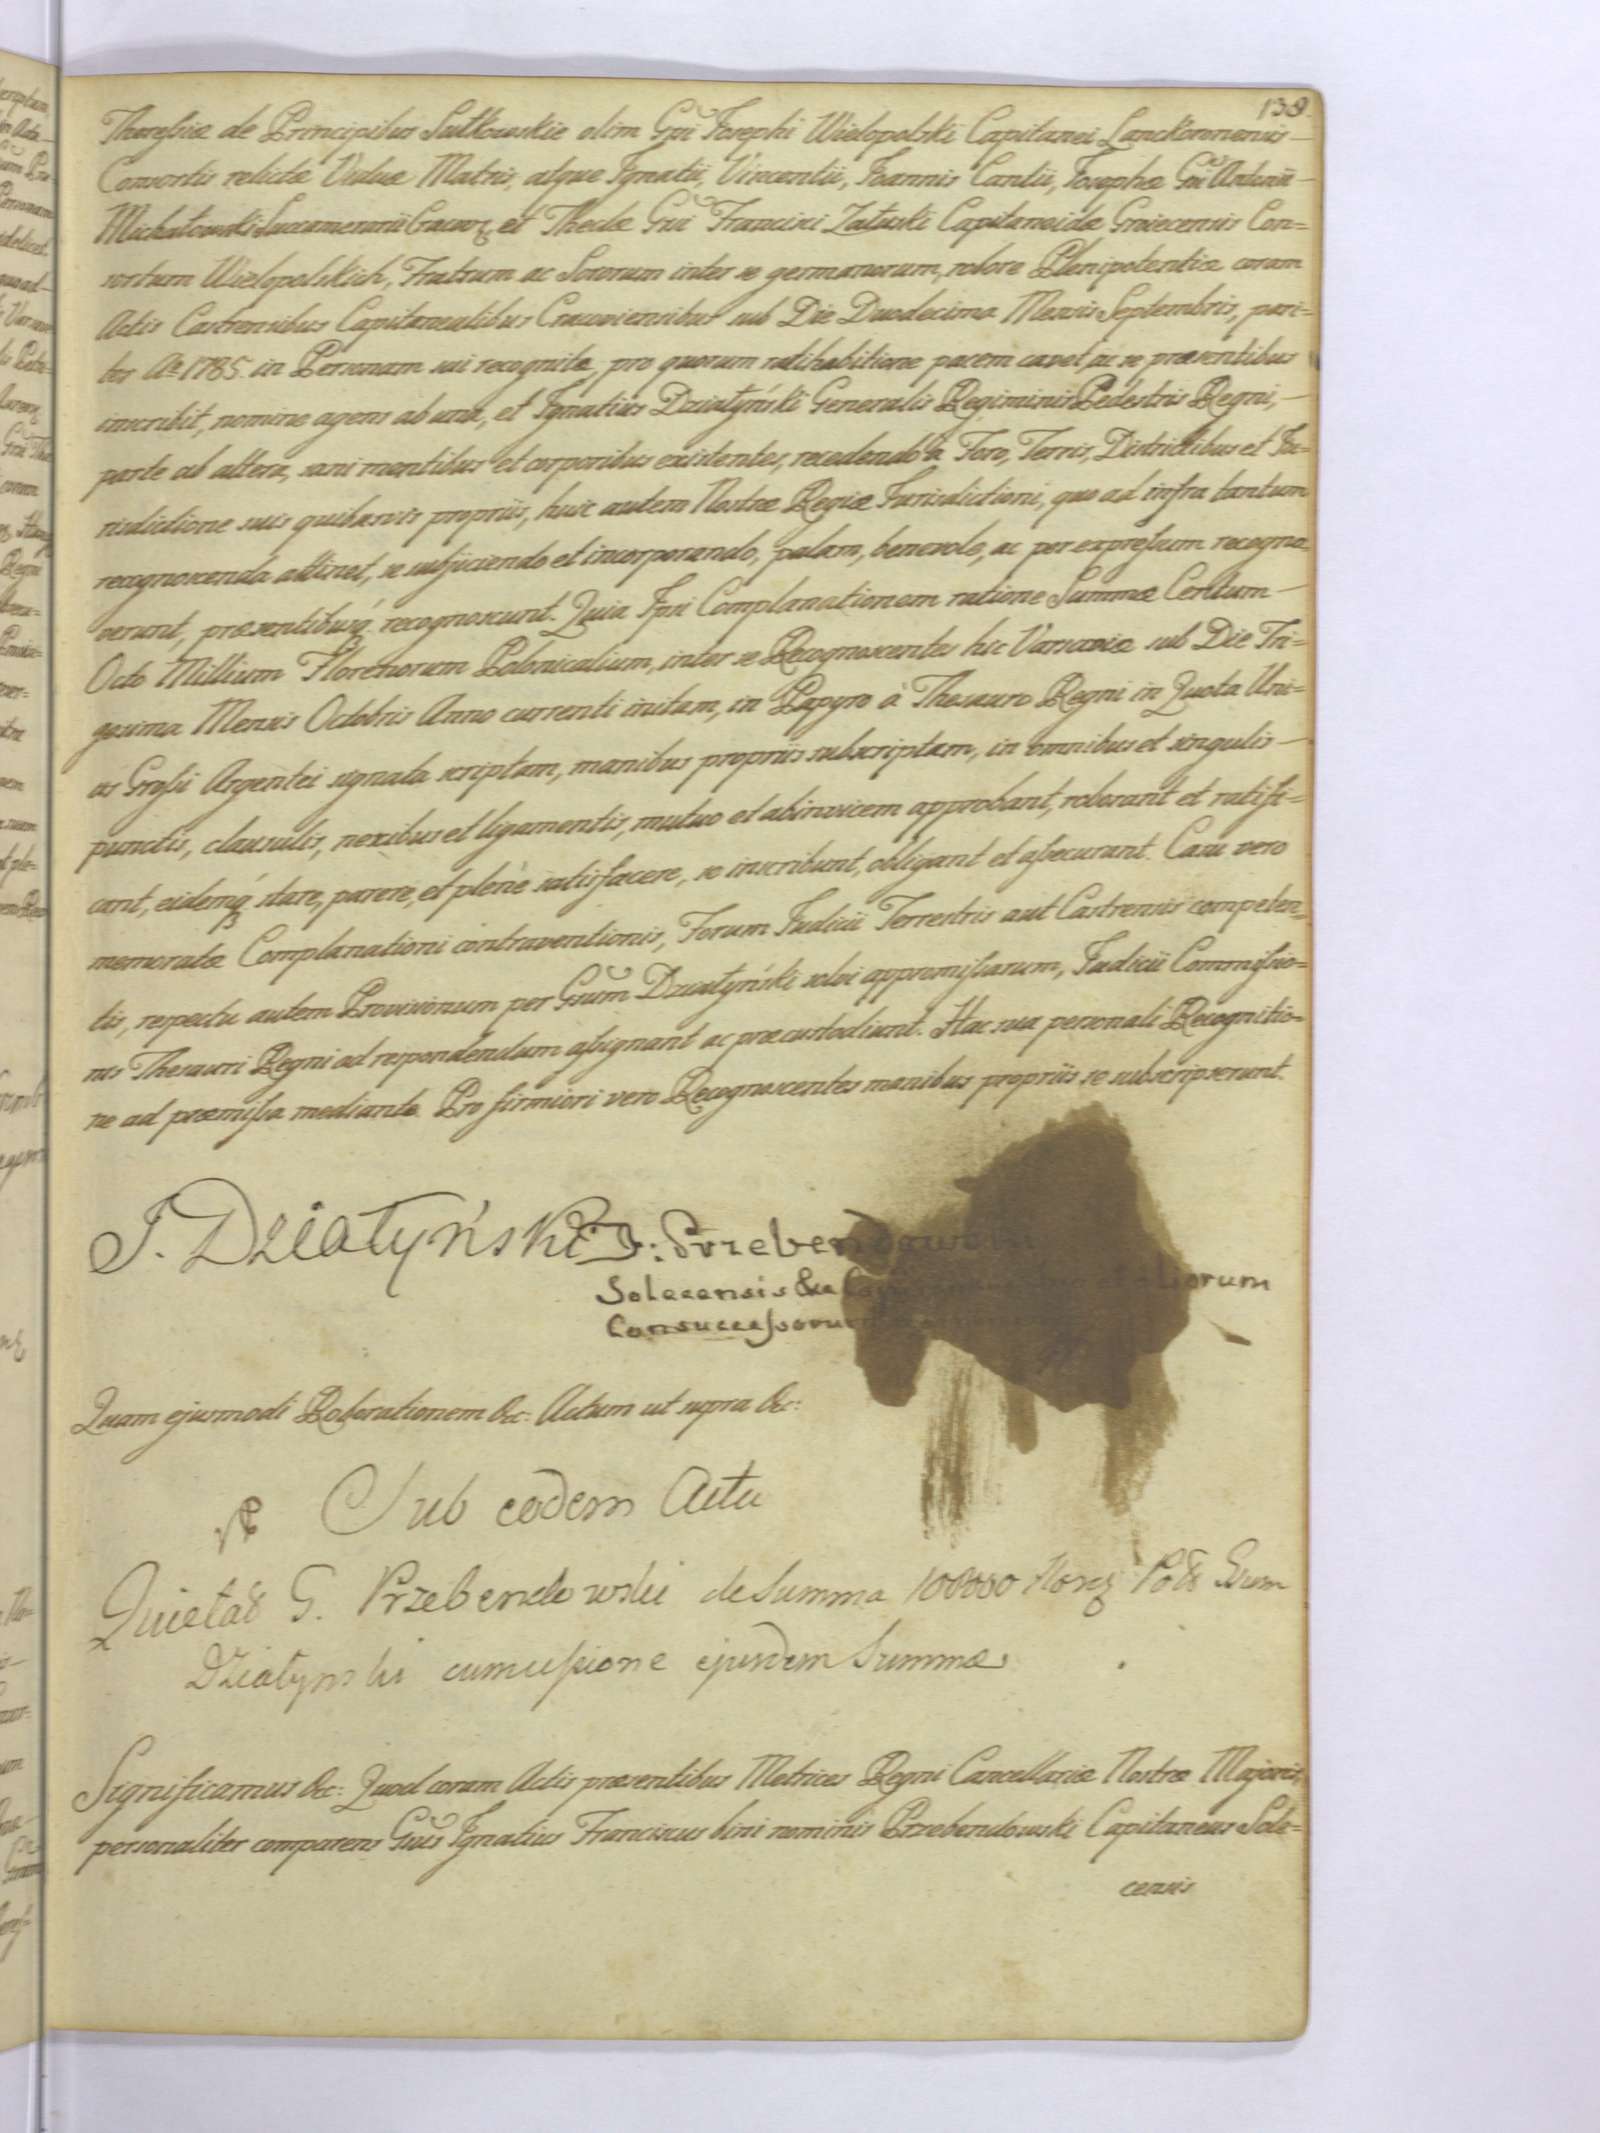 139.
Theressiæ de Principibus Sułkowskie olim Gñi Josephi Wielopolski Capitanei Lanckoronensis
Consortis relictæ Viduæ Matris, atque Ignatii, Vincentii, Joannis Cantii, Josephæ Gñi Antonii
Michałowski Succamerarii Cracov et Theclæ Gñi Francisci Załuski Capitaneidæ Groiecensis Con=
sortum Wielopolskich, Fratrum ac Sororum inter se germanorum, robore Plenipotentiæ coram
Actis Castrensibus Capitanealibus Cracoviensibus sub Die Duodecima Mensis Septembris, pari=
ter Aº 1785. in Personam sui recognitæ, pro quorum ratihabitione pacem cavet, ac se præsentibus
inscribit, nomine agens ab una, et Ignatius Działyński Generalis Regiminis Pedestris Regni,
parte ab altera, sani mentibus et corporibus existentes, recedendo à Foro, Terris, Districtibus et Ju=
risdictione suis quibusvis propriis, huic autem Nostræ Regiæ Jurisdictioni, quo ad infra tantum
recognoscenda attinet, se subjiciendo et incorporando, palam, benevole, ac per expressum recogno=
verunt, præsentibusq́ recognoscunt. Quia Ipsi Complanationem ratione Summæ Centum
Octo Millium Florenorum Polonicalium, inter se Recognoscentes hic Varsaviæ sub Die Tri=
gesima Mensis Octobris Anno currenti initam, in Papyro à Thesauro Regni in Quota Uni=
us Grossi Argentei signata scriptam, manibus propriis subscriptam, in omnibus et singulis
punctis, clausulis, nexibus et ligamentis, mutuo et abinvicem approbant, roborant et ratifi=
cant, eidemq́ stare, parere, et plenè satisfacere, se inscribunt, obligant et assecurant. Casu vero
memoratæ Complanationi contraventionis, Forum Judicii Terrestris aut Castrensis competen=
tis, respectu autem Provisionum per Gñum Działyński solvi appromissarum, Judicii Commissio=
nis Thesauri Regni ad respondendum assignant ac præcustodiunt. Hac sua personali Recognitio=
ne ad præmissa mediante. Pro firmiori vero Recognoscentes manibus propriis se subscripserunt.
J. Działyński J: Przebendowski
Solecensis &a aliorum
Consuccessorum
Quam ejusmodi Roborationem &c: Actum ut supra &c:
Sub eodem Actu
Quietao G. Przebendowski de Summa 108000 Floren Gñum
Działynski cum cessione ejusdem Summæ
Significamus &c: Quod coram Actis præsentibus Metrices Regni Cancellariæ Nostræ Majoris,
personaliter comparens Gñus Ignatius Franciscus bini nominis Przebendowski Capitaneus Sole=
censis